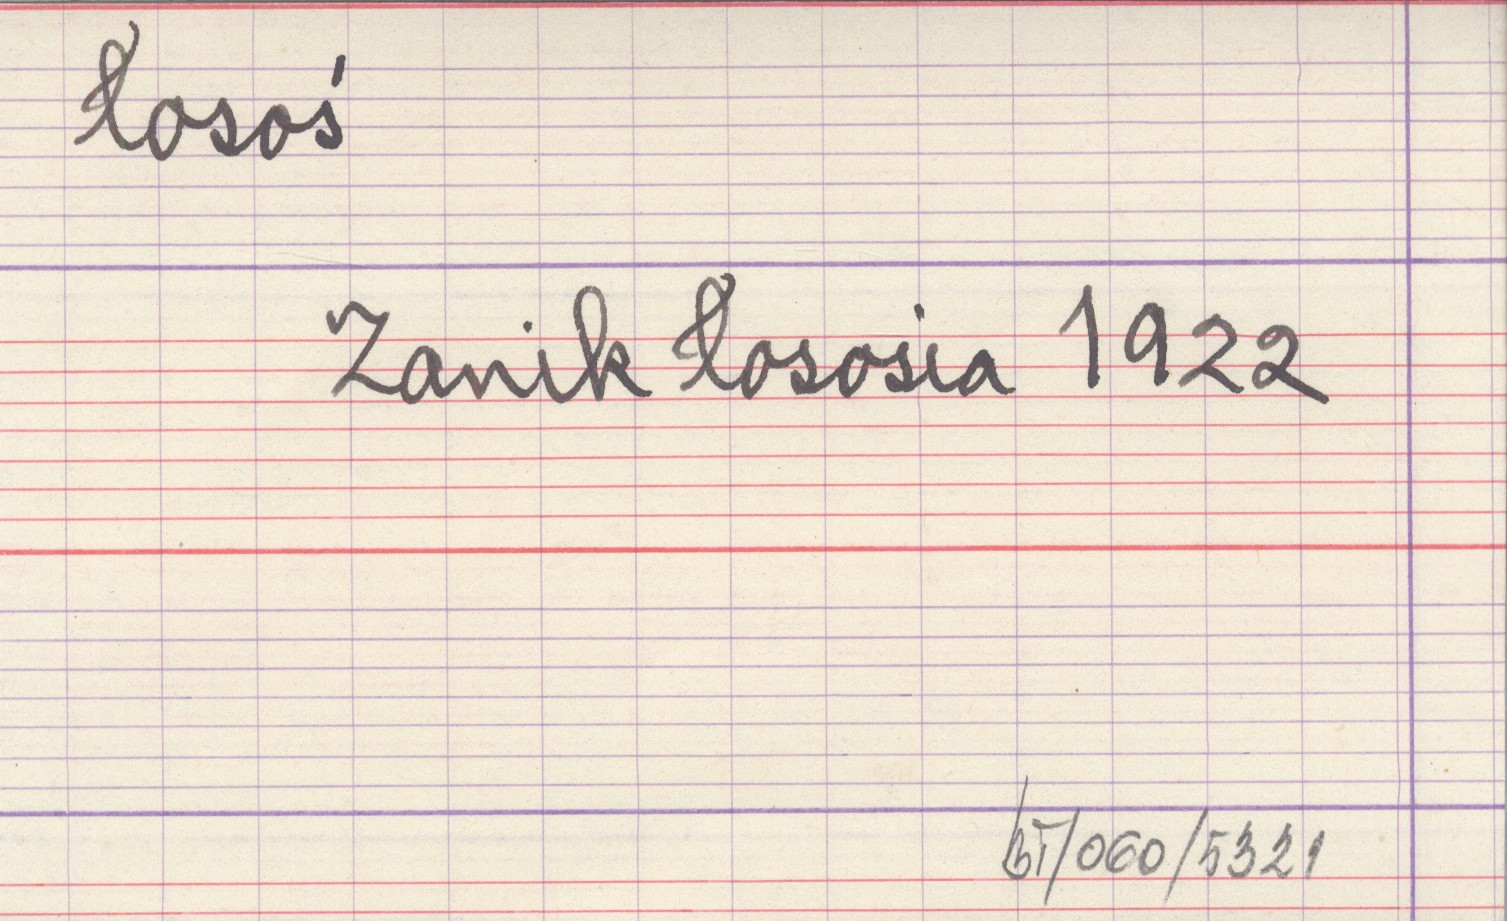 Łosoś
Zanik Łososia 1922
BT/060/5321